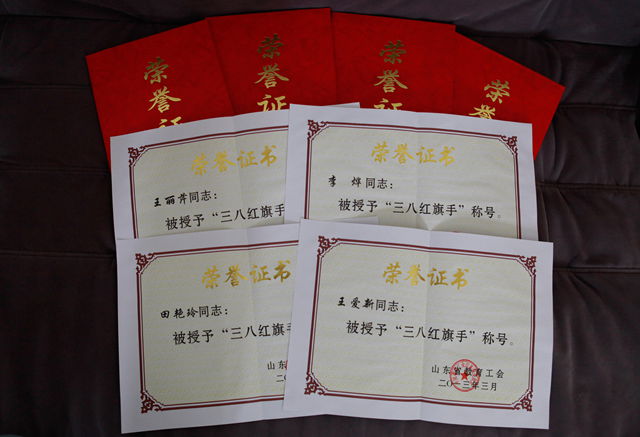 荣誉证
荣誉证
荣誉证
荣誉
荣誉证书
王丽芹同志：
被授予“三八红旗手
荣誉证书
李烨同志：
被授予“三八红旗手”称号。
荣誉证书
田艳玲同志：
被授予“三八红旗手
山东
二〇
荣誉证书
王爱新同志：
被授予“三八红旗手”称号。
山东省教育工会
二〇一三年三月